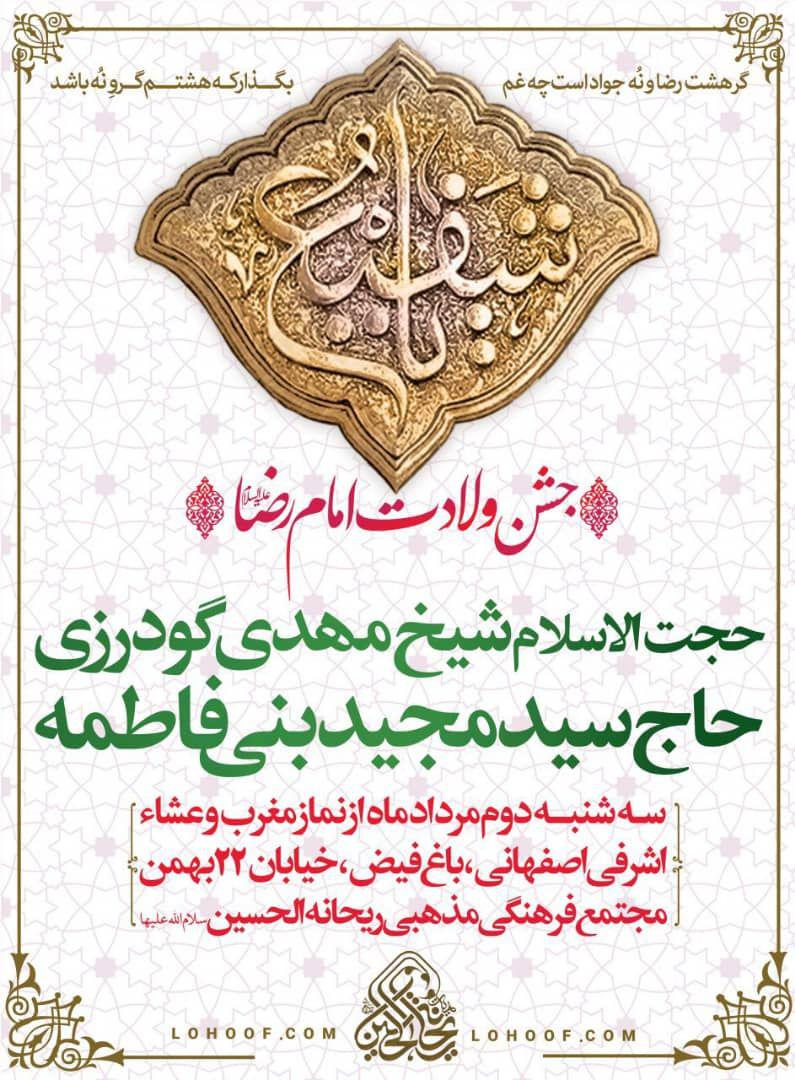 گر هشت رضا و نُه جواد است چه غم
بگذار که هشتم گروِ نُه باشد
شفیعنا
جشن ولادت امام رضا علیه‌السلام
حجت الاسلام شیخ مهدی گودرزی
حاج سید مجید بنی فاطمه
سه شنبه دوم مرداد ماه از نماز مغرب و عشاء
اشرفی اصفهانی، باغ فیض، خیابان ۲۲ بهمن
مجتمع فرهنگی مذهبی ریحانه الحسین سلام الله علیها
LOHOOF.COM
LOHOOF.COM